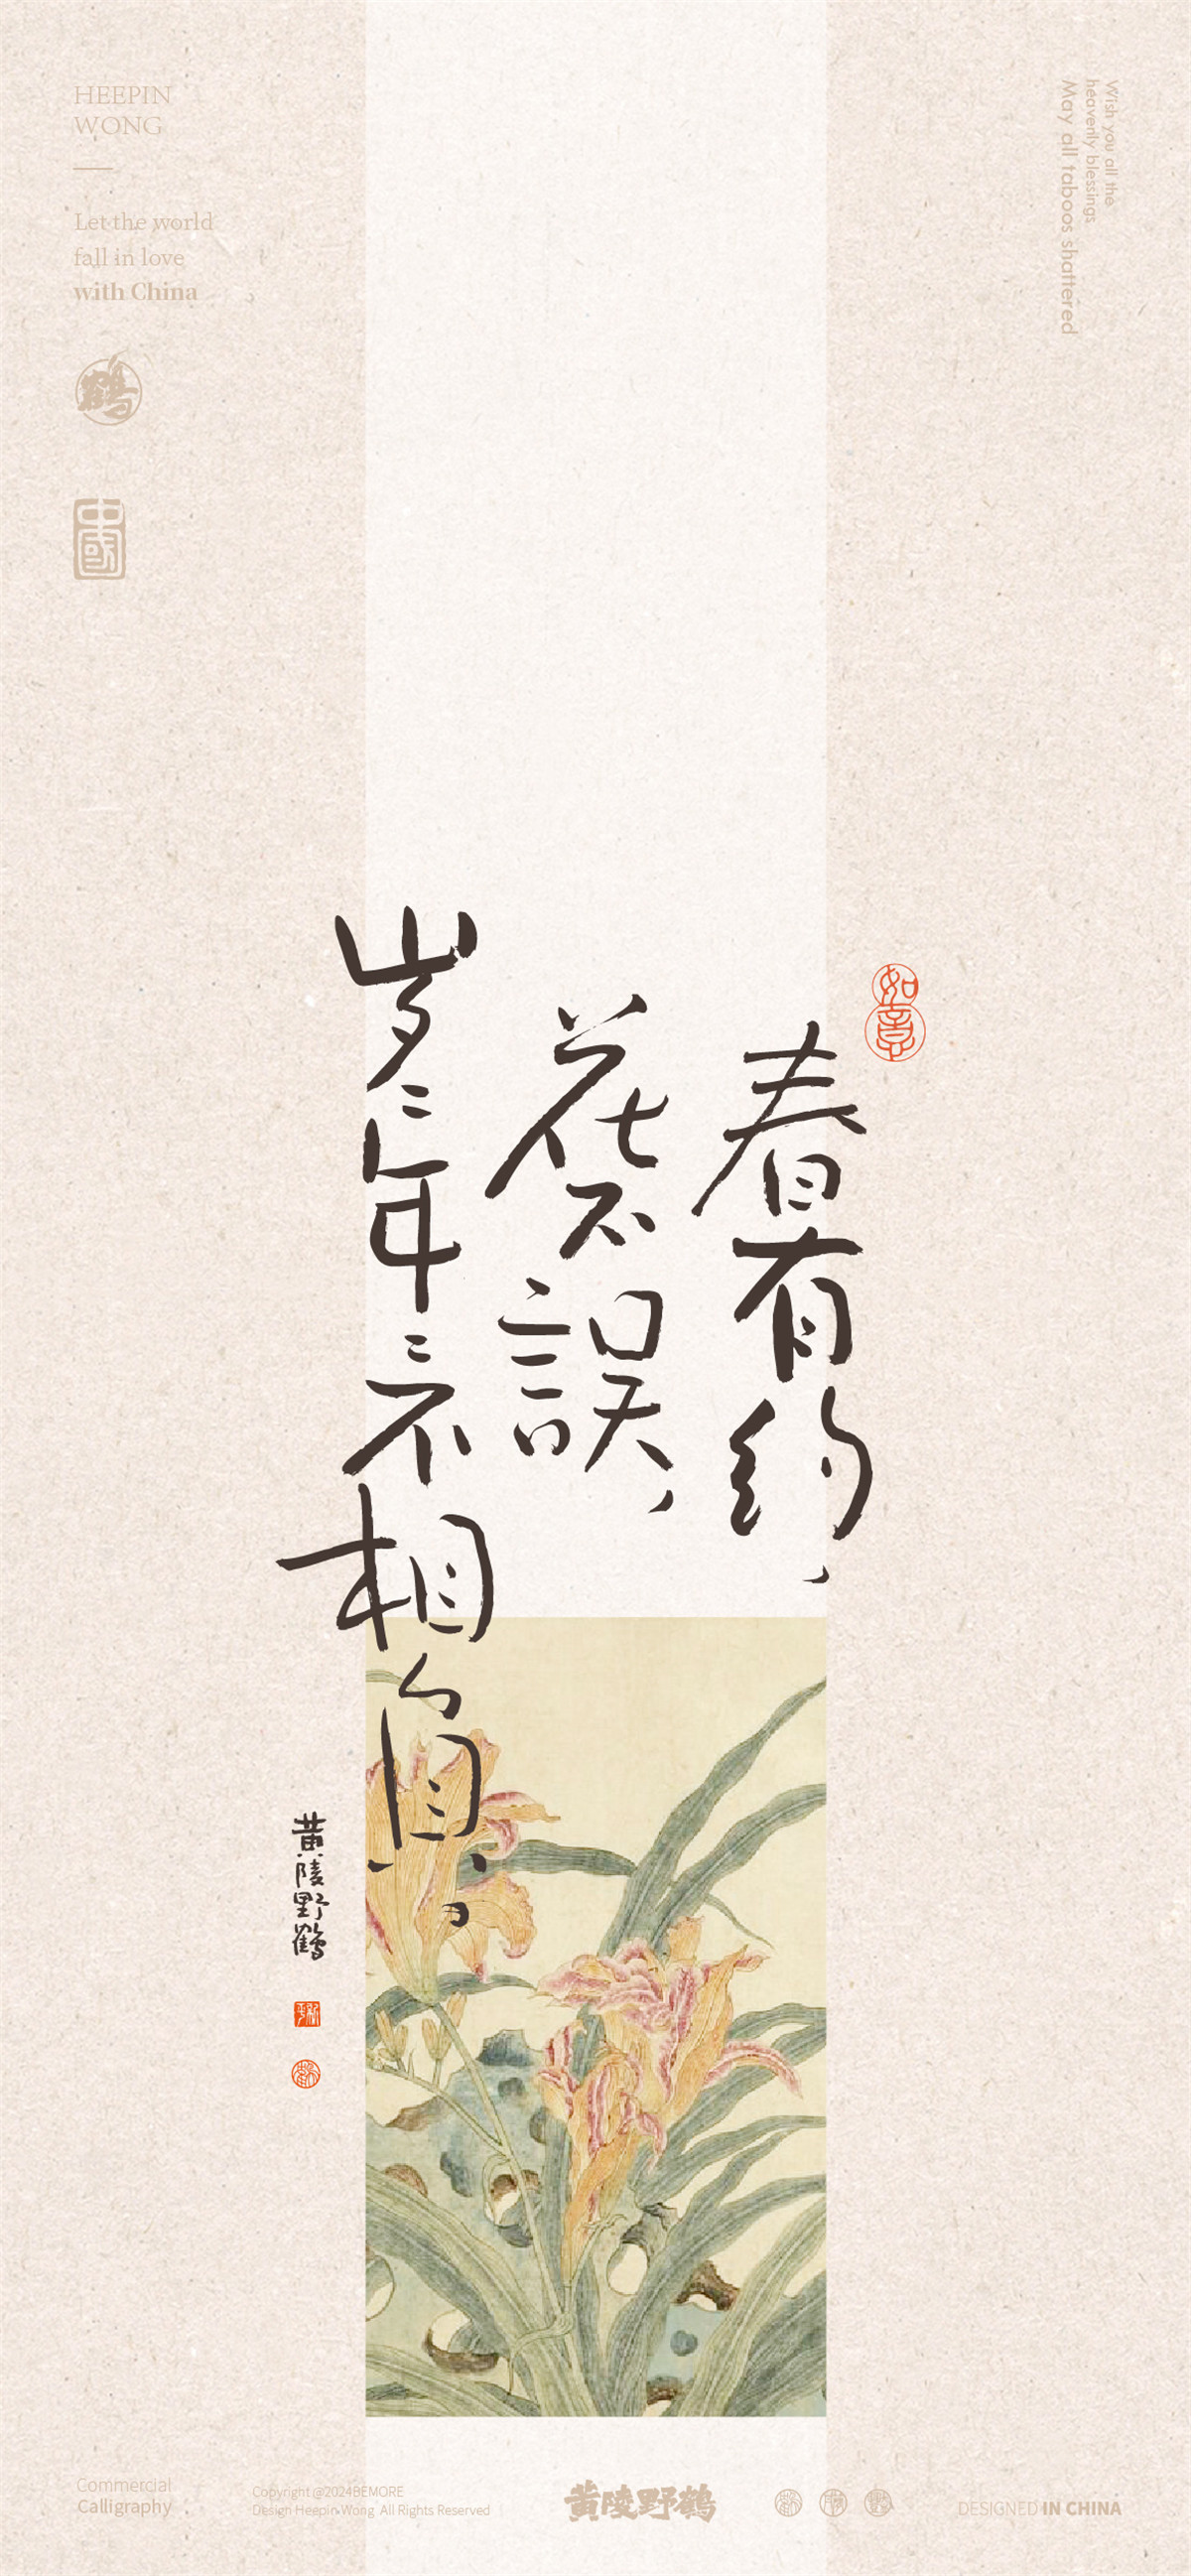 HEEPIN
WONG
Let the world
fall in love
with China
鶴
中國
Wish you all the
heavenly blessings
May all taboos shattered
如意
春有约，
花不誤，
岁二年二不相負。
黄陵野鶴
Commercial
Calligraphy
Copyright @2024BEMORE
Design Heepin Wong All Rights Reserved
黄陵野鶴
DESIGNED IN CHINA